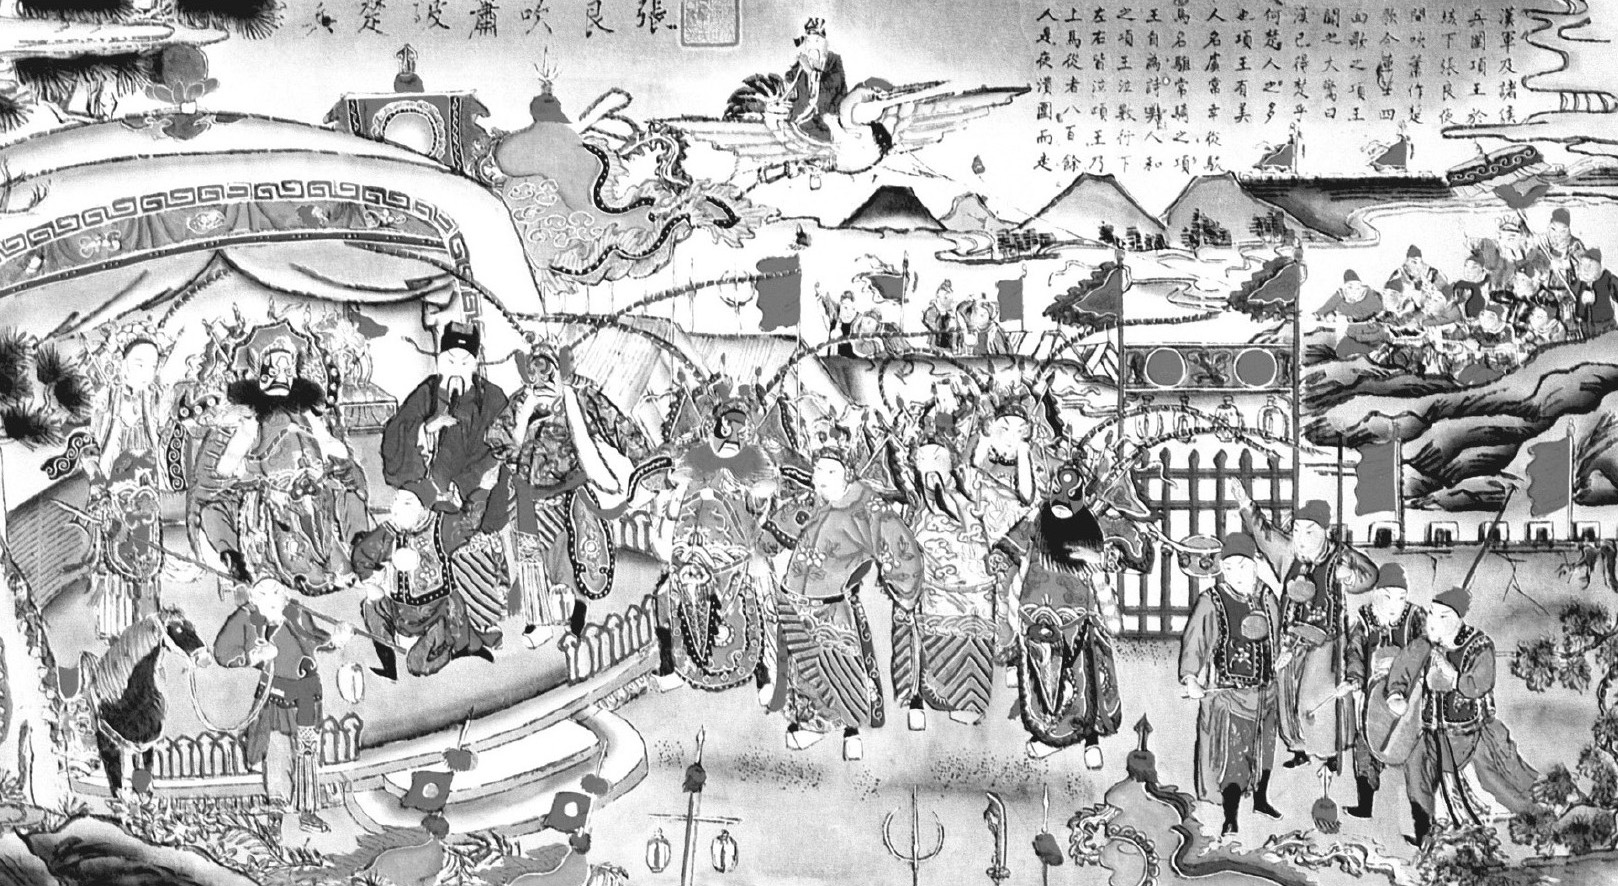 張良吹蕭破楚兵
漢軍及諸侯
兵圍項王於
垓下張良夜
間吹蕭作楚
歌令軍士四
面歌之項王
聞之大驚曰
漢已得楚乎
何楚人之多
也項王有美
人名虞常幸從駿
馬名騅常騎之項
王自為詩美人和
之項王泣數行下
左右皆泣項王乃
上馬從者八百餘
人是夜潰圍而走